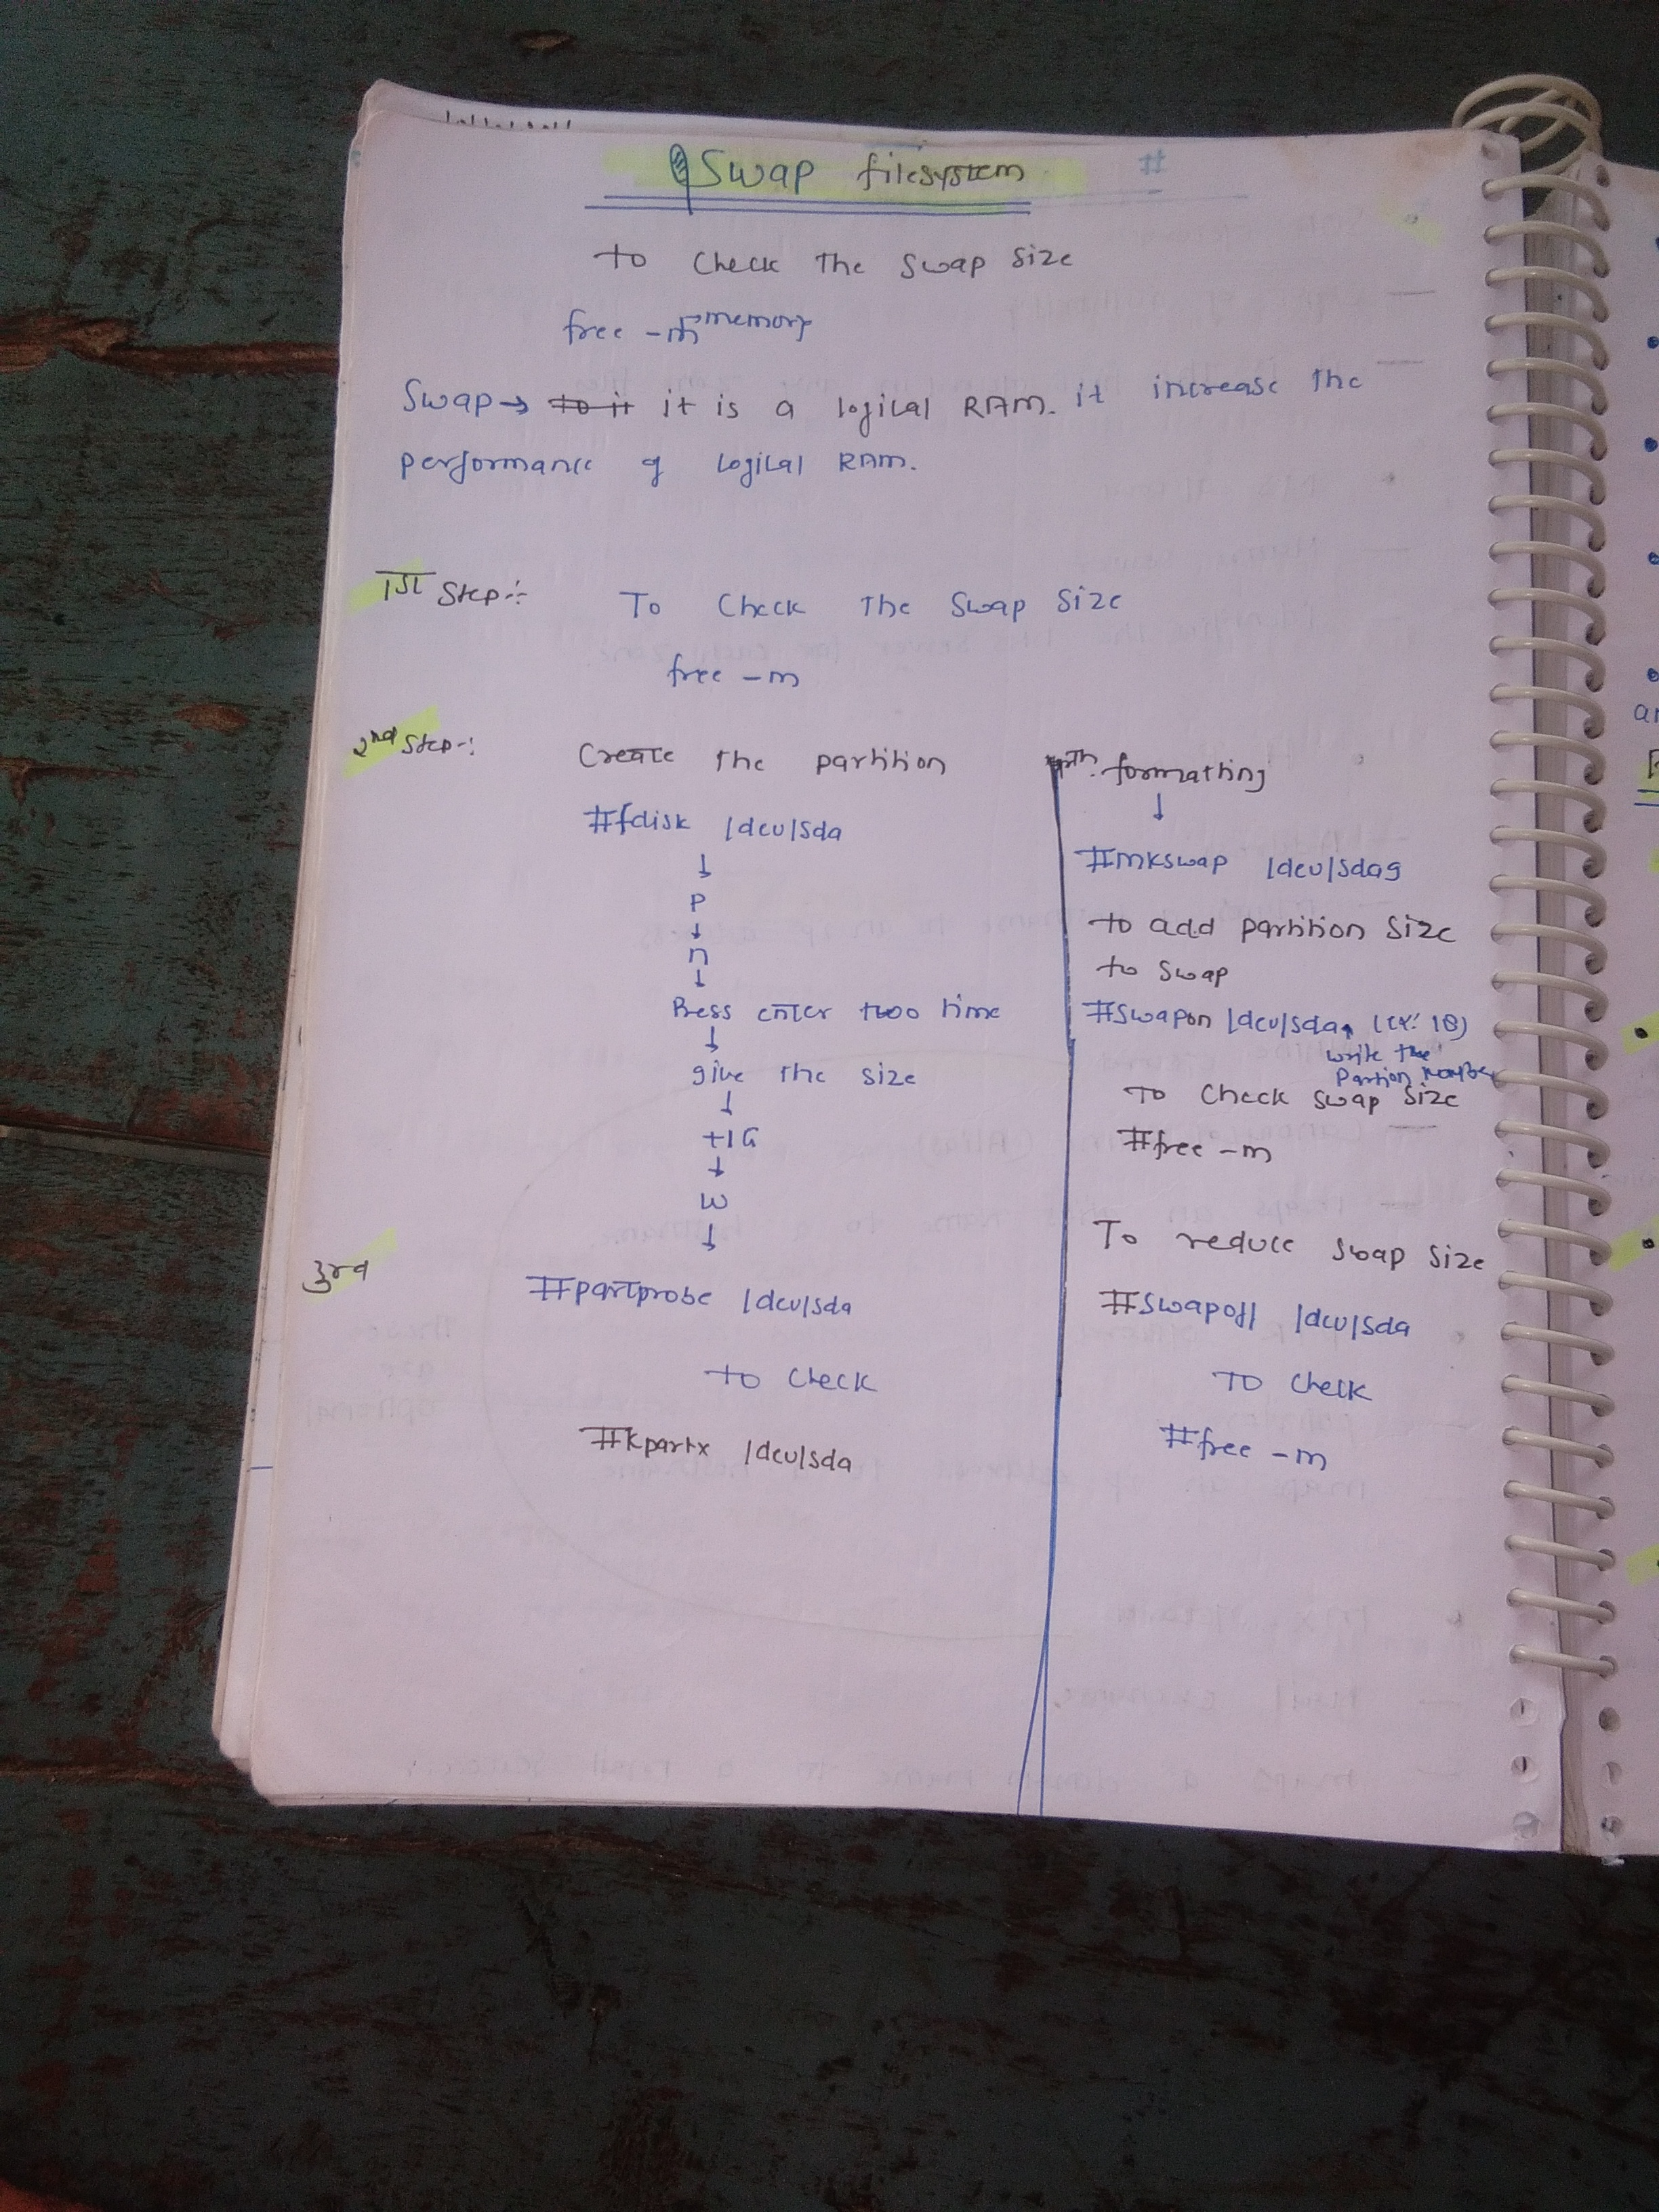 Swap filesystem
#
to Check The Swap Size
free -m memory
Swap→ to it it is a logical RAM. it increase the
performance of Logical RAM.
1st Step:- To Check The Swap Size
free -m
2nd Step-: Create The partition
#fdisk /dev/sda
↓
P
↓
n
↓
Press enter two time
↓
give the size
↓
+1G
↓
w
↓
3rd
#partprobe /dev/sda
to Check
#kpartx /dev/sda
formatting
↓
#mkswap /dev/sda9
to add partition size
to swap
#Swapon /dev/sda (ex: 10)
write the
Partion number
To Check swap Size
#free -m
To reduce swap size
#swapoff /dev/sda
TO Check
#free -m